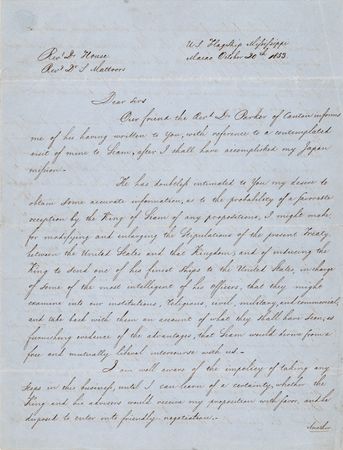 U.S. Flagship Mississippi
Macao October 20th 1853.
Revd Dr House
Revd Dr S Mattoon
Dear Sirs
Our friend the Revd Dr Parker of Canton informs
me of his having written to You, with reference to a contemplated
visit of mine to Siam, after I shall have accomplished my Japan
mission.
He has doubtless intimated to You my desire to
obtain some accurate information, as to the probability of a favorable
reception by the King of Siam of any propositions, I might make,
for modifying and enlarging the stipulations of the present Treaty
between the United States and that Kingdom; and of inducing the
King to send one of his finest Ships to the United States, in charge
of some of the most intelligent of his officers, that they might
examine into our institutions, religious, civil, military, and commercial,
and take back with them an account of what they shall have seen, as
furnishing evidence of the advantages, that Siam would derive from a
free and mutually liberal intercourse with us.-
I am well aware of the impolicy of taking any
steps in this business, until I can learn of a certainty, whether the
King and his advisors would receive my proposition with favor, and be
disposed to enter into friendly negotiation.-